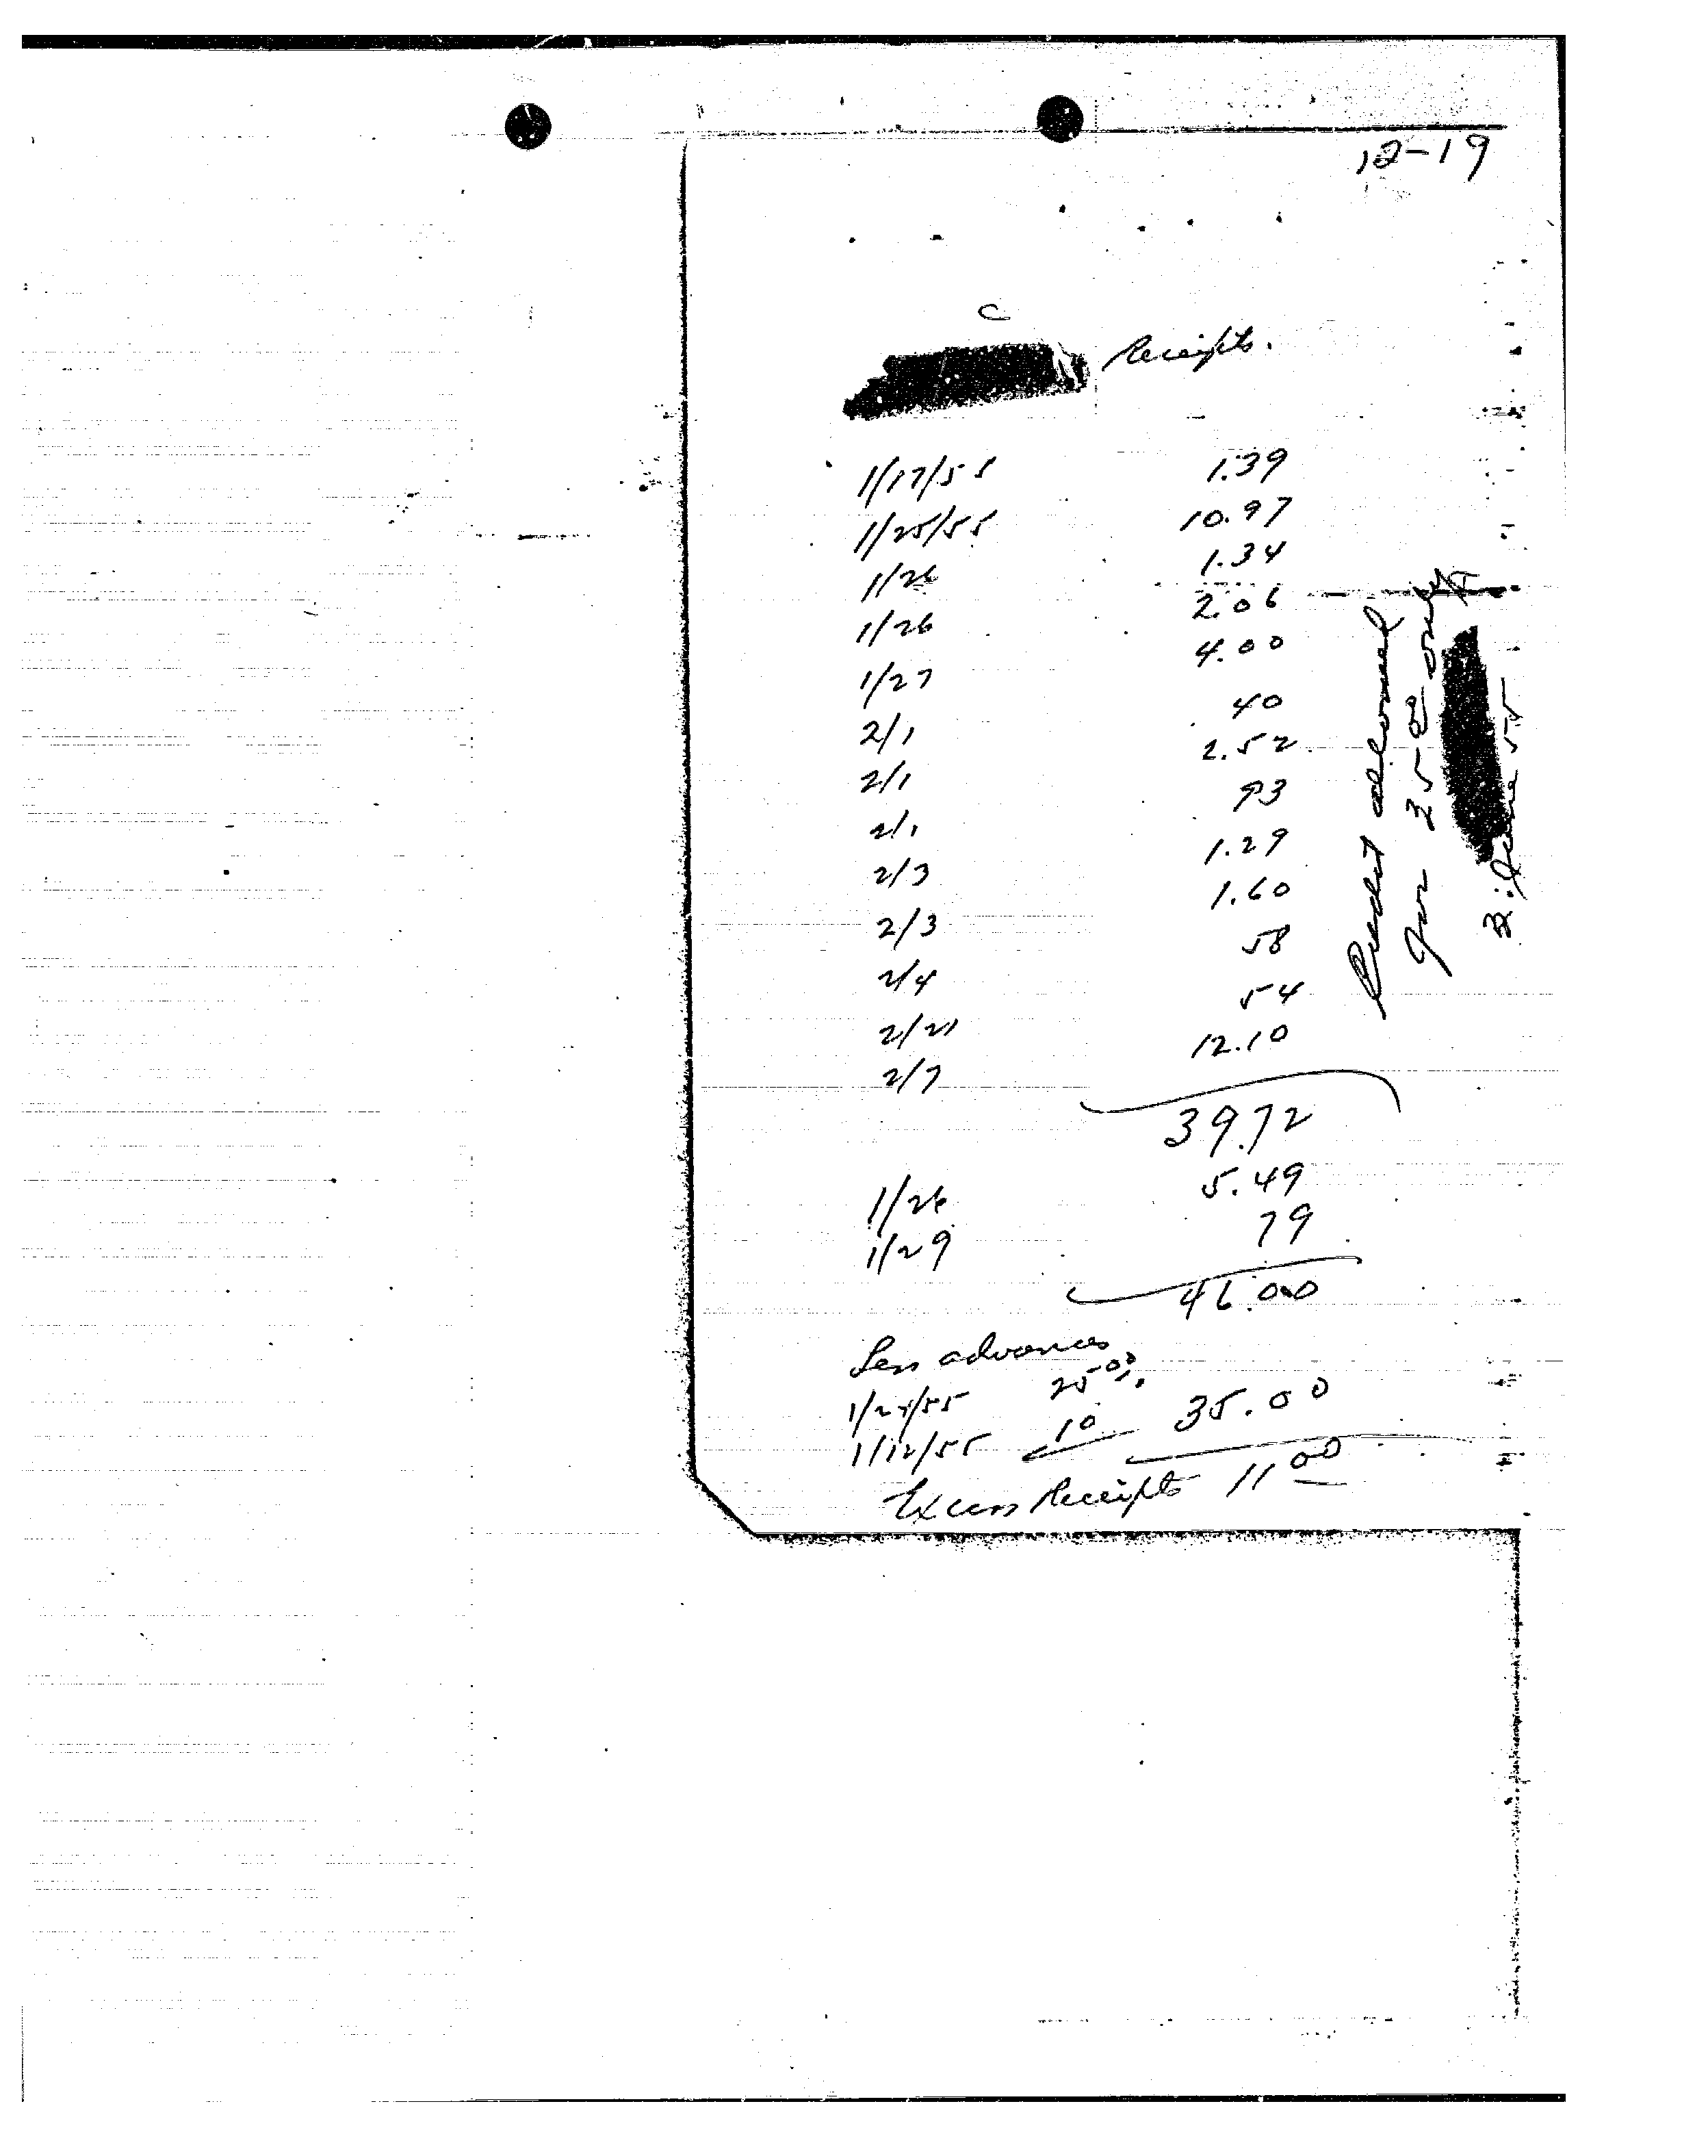 12-19
C
Receipts.
1/17/55 1.39
1/25/55 10.97
1/26 1.34
1/26 2.06
1/27 4.00
2/1 40
2/1 2.52
2/1 93
2/3 1.29
2/3 1.60
2/4 58
2/21 54
2/7 12.10
39.72
1/26 5.49
1/29 79
46.00
Less advances
25 00
1/12/55 10 35.00
Excess Receipts 11 00
Credit allowed
for 35 00 only
2 June 55